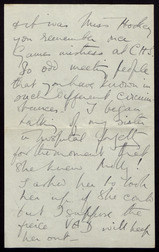 & it was Miss
you remember nice
Games mistress at CHS
So odd meeting people
that you have known in
such different circum
stances. I began
talking of my sister
in hospital & forgot
for the moment that
she knew
I asked her to look
her up if she could
but I suppose the
fierce VAD will keep
her out